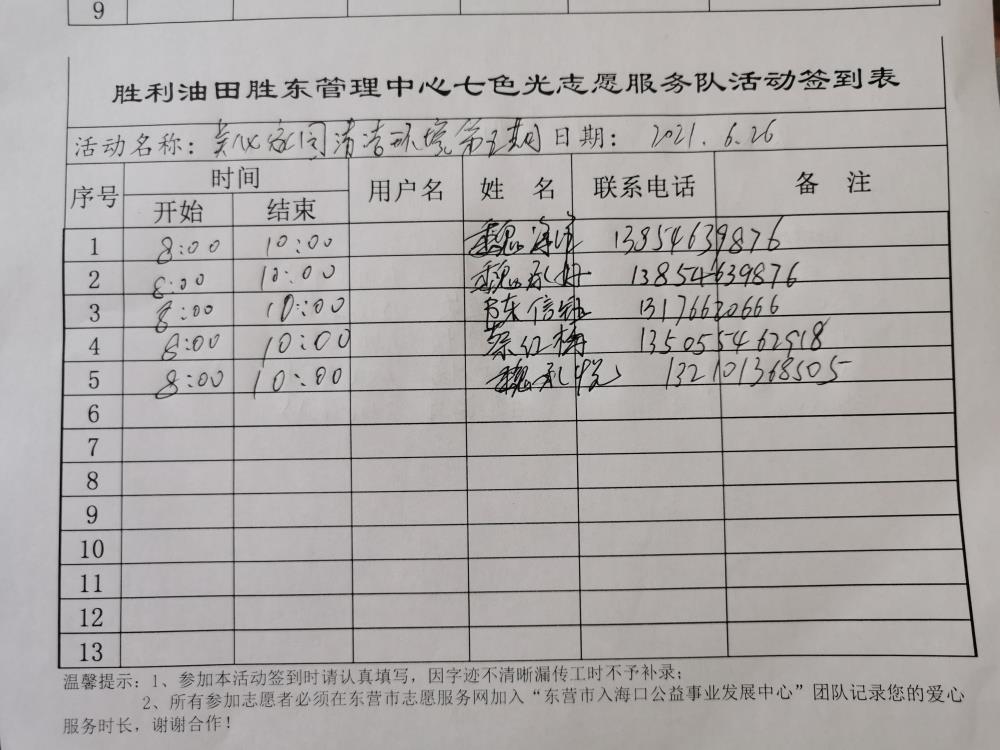 9
胜利油田胜东管理中心七色光志愿服务队活动签到表
活动名称： 美化家园清洁环境第五期 日期： 2021.6.26
序号 时间 用户名 姓 名 联系电话 备 注
开始 结束
1 8:00 10:00 魏 13854639876
2 8:00 10:00 魏承 13854639876
3 8:00 10:00 陈信 13176620666
4 8:00 10:00 蔡红梅 135055462918
5 8:00 10:00 魏承悦 132101368505
6
7
8
9
10
11
12
13
温馨提示：1、参加本活动签到时请认真填写，因字迹不清晰漏传工时不予补录；
2、所有参加志愿者必须在东营市志愿服务网加入“东营市入海口公益事业发展中心”团队记录您的爱心
服务时长，谢谢合作！